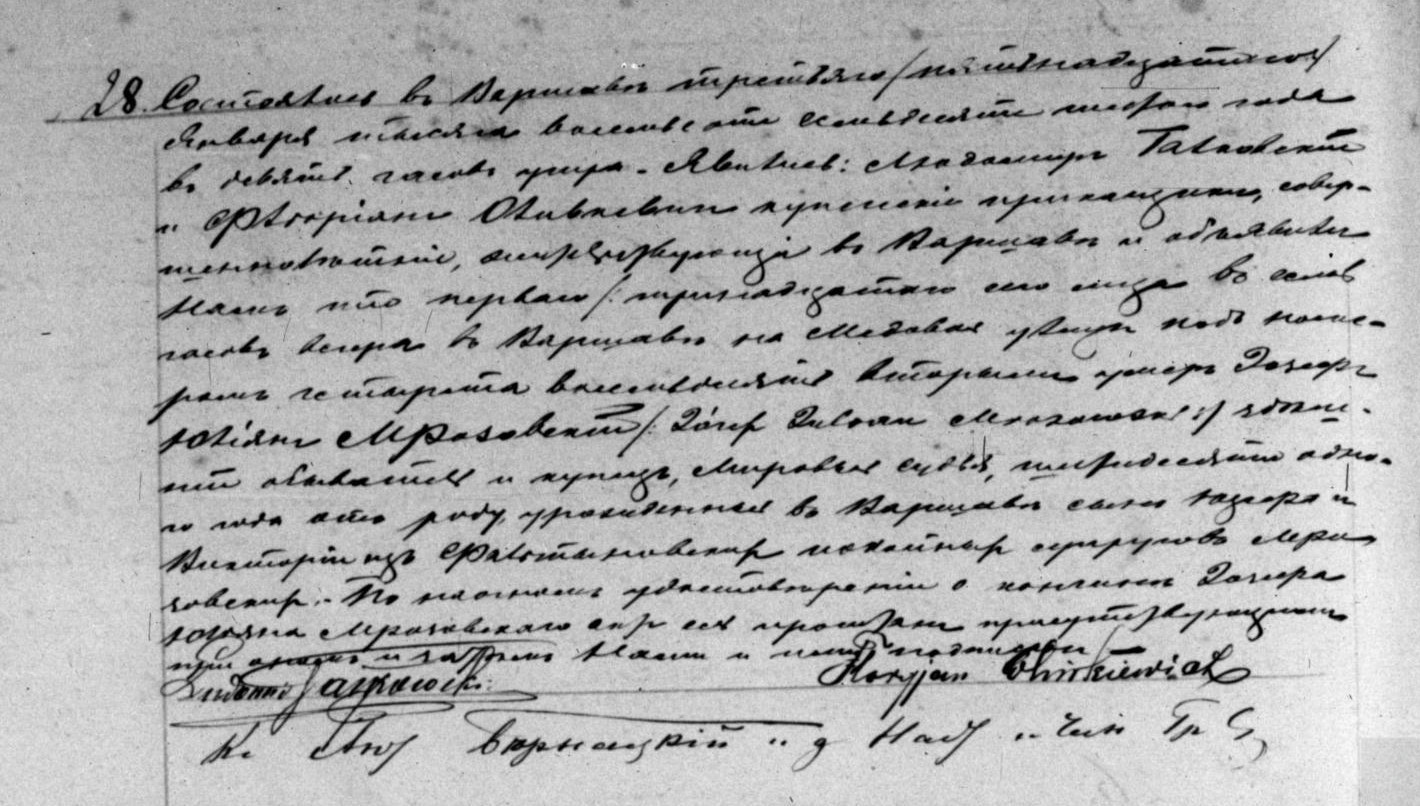 28. Состоялось въ Варшавѣ третьяго /пятьнадцатаго/
Января тысяча восемьсотъ семьдесятъ шестаго года
въ девять часовъ утра. Явились: Людомиръ
и Флоріянъ Оливкевичъ купеческіе прикащики, совер-
шеннолѣтніе, жительствующіе въ Варшавѣ и объявили
Намъ что перваго /: тринадцатаго сего мѣсяца въ семь
часовъ вечера въ Варшавѣ на Медовой улицѣ подъ номе-
ромъ четыреста восемьдесятъ вторымъ умеръ Іосифъ
Юліянъ Мрозовскій /: Józef Julian Mrozowski :/
обыватель и купецъ, Мировый судья, шестьдесятъ одно-
го года отъ роду, урожденный въ Варшавѣ сынъ Іозефа и
Викторіи изъ покойныхъ супруговъ Мро-
зовскихъ. По настоящемъ удостовѣреніи о кончинѣ Іосифа
Юліяна Мрозовскаго актъ сей прочитанъ присутствующимъ
при ономъ и затѣмъ Нами и ними подписанъ
Floryjan Oliwkiewicz